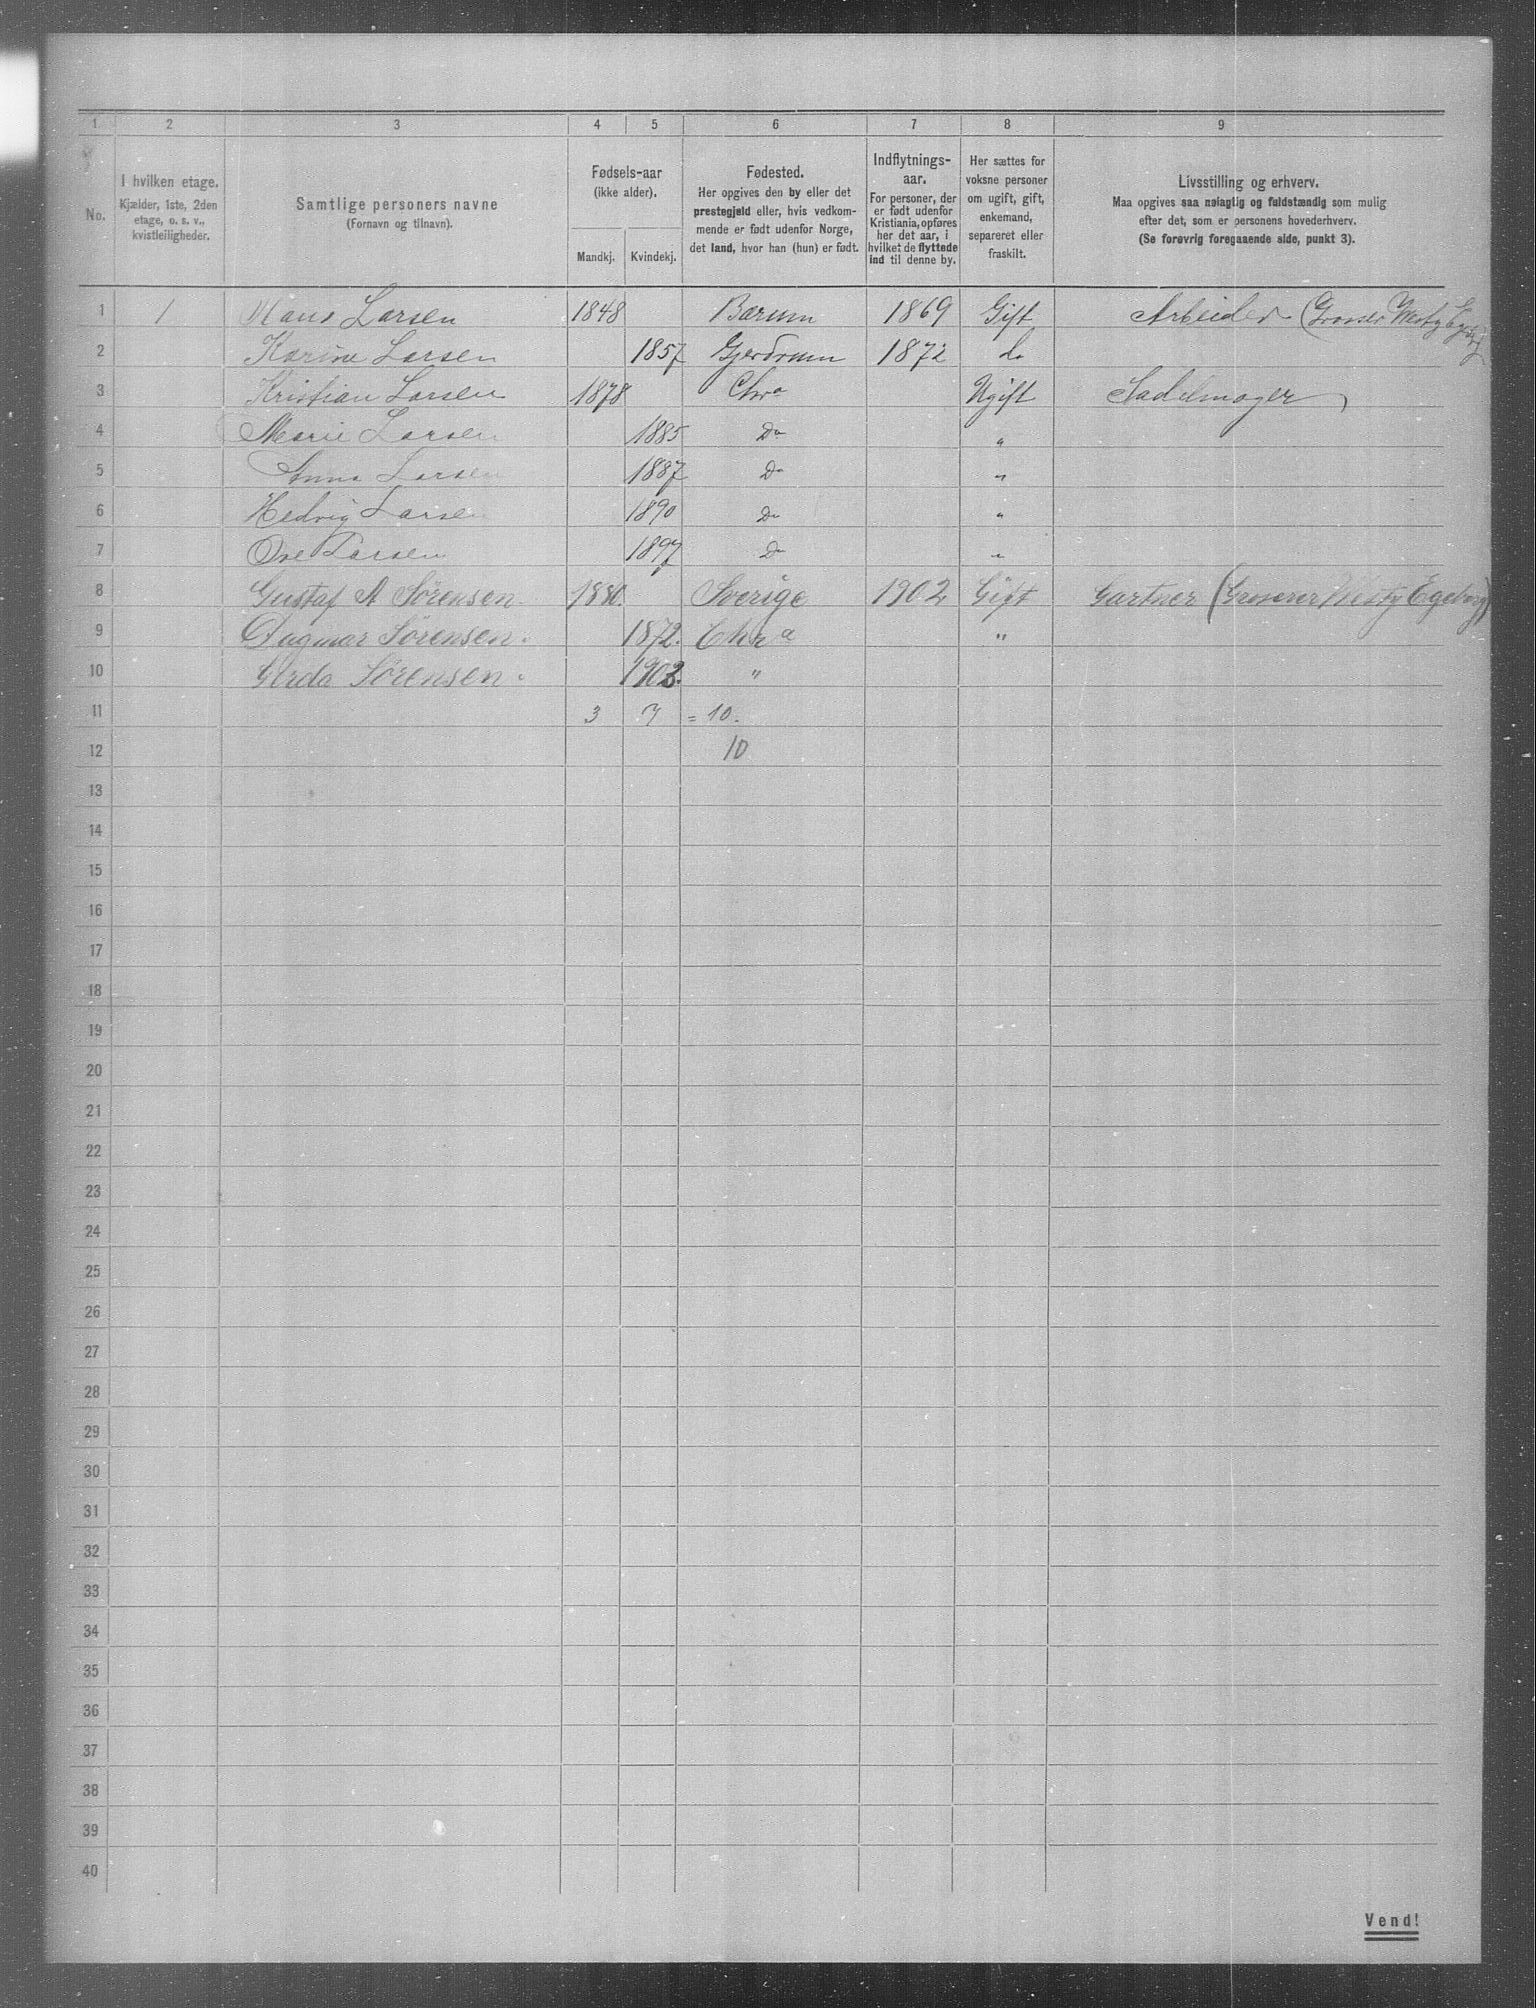 1 2 3 4 5 6 7 8 9
No.
I hvilken etage.
Kjælder, 1ste, 2den
etage, o. s. v.,
kvistleiligheder.
Samtlige personers navne
(Fornavn og tilnavn).
Fødsels-aar
(ikke alder).
Mandkj. Kvindekj.
Fødested.
Her opgives den by eller det
prestegjeld eller, hvis vedkom-
mende er født udenfor Norge,
det land, hvor han (hun) er født.
Indflytnings-
aar.
For personer, der
er født udenfor
Kristiania, opføres
her det aar, i
hvilket de flyttede
ind til denne by.
Her sættes for
voksne personer
om ugift, gift,
enkemand,
separeret eller
fraskilt.
Livsstilling og erhverv.
Maa opgives saa nøiagtig og fuldstændig som mulig
efter det, som er personens hovederhverv.
(Se forøvrig foregaaende side, punkt 3).
1 1 Hans Larsen 1848 Barum 1869 Gift Arbeider (Grosser Westye Egeberg)
2 Karine Larsen 1857 Gjerdrum 1872 do
3 Kristian Larsen 1878 Chra Ugift Sadelmager
4 Marie Larsen 1885 Do "
5 Anna Larsen 1887 Do "
6 Hedvig Larsen 1890 Do "
7 Larsen 1897 Do "
8 Gustaf A Sörensen. 1880. Sverige 1902 Gift Gartner (Groserer Westy Egeberg)
9 Dagmar Sörensen. 1872. Chra "
10 Gerda Sörensen. "
11 3 7 = 10.
12 10
13
14
15
16
17
18
19
20
21
22
23
24
25
26
27
28
29
30
31
32
33
34
35
36
37
38
39
40
Vend!